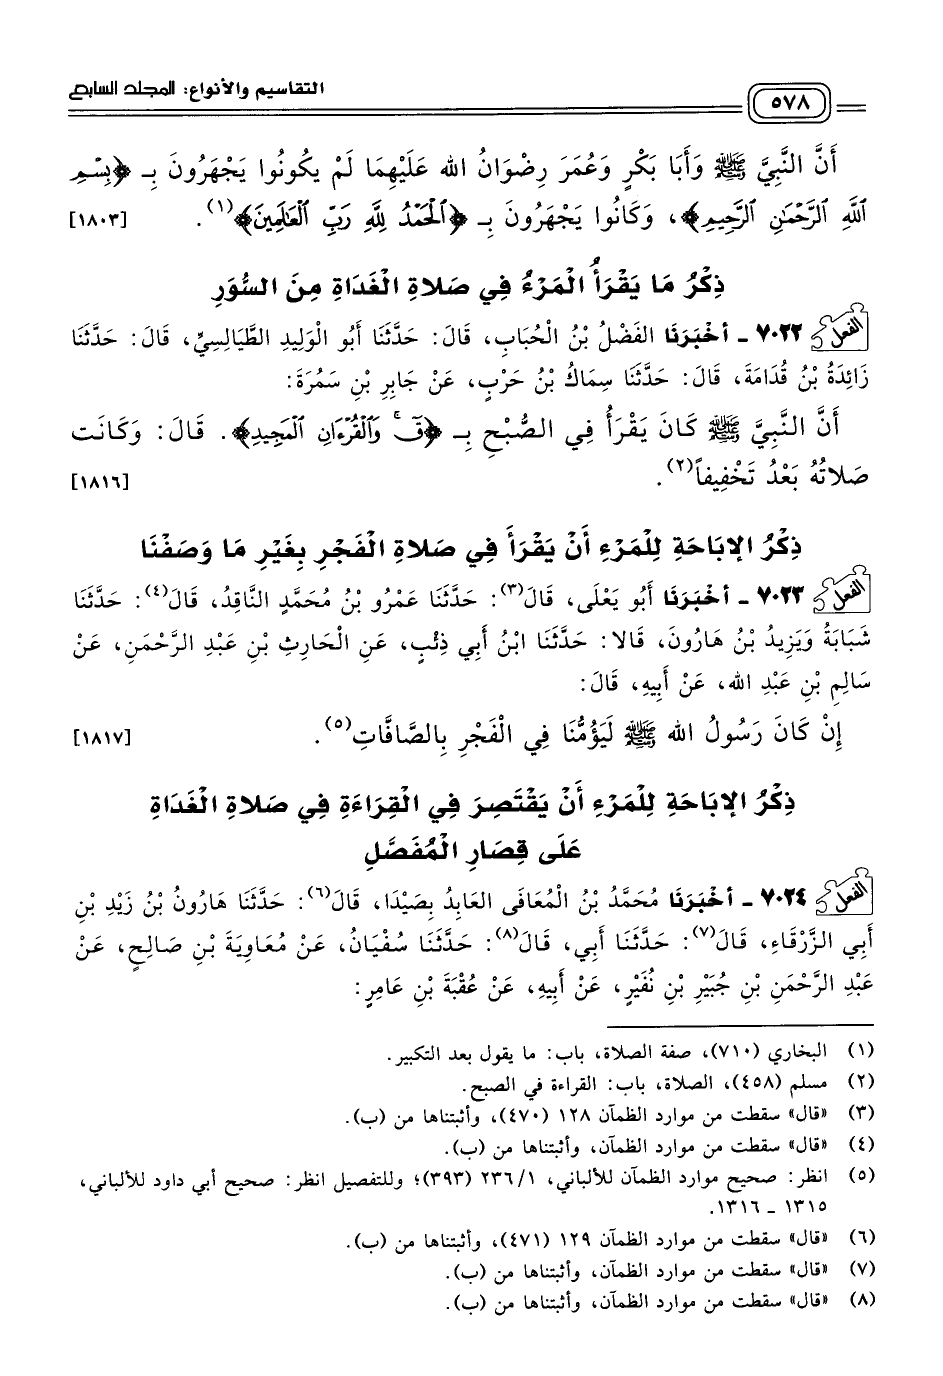 ٥٧٨ التقاسيم والأنواع: المجلد السابع
أَنَّ النَّبِيَّ ﷺ وَأَبَا بَكْرٍ وَعُمَرَ رِضْوَانُ الله عَلَيْهِمَا لَمْ يَكُونُوا يَجْهَرُونَ بِـ ﴿بِسْمِ
ٱللَّهِ ٱلرَّحْمَٰنِ ٱلرَّحِيمِ﴾، وَكَانُوا يَجْهَرُونَ بِـ ﴿ٱلْحَمْدُ لِلَّهِ رَبِّ ٱلْعَٰلَمِينَ﴾(١). [١٨٠٣]
ذِكْرُ مَا يَقْرَأُ الْمَرْءُ فِي صَلاةِ الْغَدَاةِ مِنَ السُّوَرِ
الفعل ٧٠٢٢ ـ أخْبَرَنَا الفَضْلُ بْنُ الْحُبَابِ، قَالَ: حَدَّثَنَا أَبُو الْوَلِيدِ الطَّيَالِسِيُّ، قَالَ: حَدَّثَنَا
زَائِدَةُ بْنُ قُدَامَةَ، قَالَ: حَدَّثَنَا سِمَاكُ بْنُ حَرْبٍ، عَنْ جَابِرِ بْنِ سَمُرَةَ:
أَنَّ النَّبِيَّ ﷺ كَانَ يَقْرَأُ فِي الصُّبْحِ بِـ ﴿قٓ ۚ وَٱلْقُرْءَانِ ٱلْمَجِيدِ﴾. قَالَ: وَكَانَت
صَلاتُهُ بَعْدُ تَخْفِيفاً(٢). [١٨١٦]
ذِكْرُ الإبَاحَةِ لِلْمَرْءِ أَنْ يَقْرَأَ فِي صَلاةِ الْفَجْرِ بِغَيْرِ مَا وَصَفْنَا
الفعل ٧٠٢٣ ـ أخْبَرَنَا أَبُو يَعْلَى، قَالَ(٣): حَدَّثَنَا عَمْرُو بْنُ مُحَمَّدٍ النَّاقِدُ، قَالَ(٤): حَدَّثَنَا
شَبَابَةُ وَيَزِيدُ بْنُ هَارُونَ، قَالا: حَدَّثَنَا ابْنُ أَبِي ذِئْبٍ، عَنِ الْحَارِثِ بْنِ عَبْدِ الرَّحْمَنِ، عَنْ
سَالِمِ بْنِ عَبْدِ الله، عَنْ أَبِيهِ، قَالَ:
إِنْ كَانَ رَسُولُ الله ﷺ لَيَؤُمُّنَا فِي الْفَجْرِ بِالصَّافَّاتِ(٥). [١٨١٧]
ذِكْرُ الإبَاحَةِ لِلْمَرْءِ أَنْ يَقْتَصِرَ فِي الْقِرَاءَةِ فِي صَلاةِ الْغَدَاةِ
عَلَى قِصَارِ الْمُفَصَّلِ
الفعل ٧٠٢٤ ـ أخْبَرَنَا مُحَمَّدُ بْنُ الْمُعَافَى العَابِدُ بِصَيْدَا، قَالَ(٦): حَدَّثَنَا هَارُونُ بْنُ زَيْدِ بْنِ
أَبِي الزَّرْقَاءِ، قَالَ(٧): حَدَّثَنَا أَبِي، قَالَ(٨): حَدَّثَنَا سُفْيَانُ، عَنْ مُعَاوِيَةَ بْنِ صَالِحٍ، عَنْ
عَبْدِ الرَّحْمَنِ بْنِ جُبَيْرِ بْنِ نُفَيْرٍ، عَنْ أَبِيهِ، عَنْ عُقْبَةَ بْنِ عَامِرٍ:
(١) البخاري (٧١٠)، صفة الصلاة، باب: ما يقول بعد التكبير.
(٢) مسلم (٤٥٨)، الصلاة، باب: القراءة في الصبح.
(٣) «قال» سقطت من موارد الظمآن ١٢٨ (٤٧٠)، وأثبتناها من (ب).
(٤) «قال» سقطت من موارد الظمآن، وأثبتناها من (ب).
(٥) انظر: صحيح موارد الظمآن للألباني، ٢٣٦/١ (٣٩٣)؛ وللتفصيل انظر: صحيح أبي داود للألباني،
١٣١٥ ـ ١٣١٦.
(٦) «قال» سقطت من موارد الظمآن ١٢٩ (٤٧١)، وأثبتناها من (ب).
(٧) «قال» سقطت من موارد الظمآن، وأثبتناها من (ب).
(٨) «قال» سقطت من موارد الظمآن، وأثبتناها من (ب).